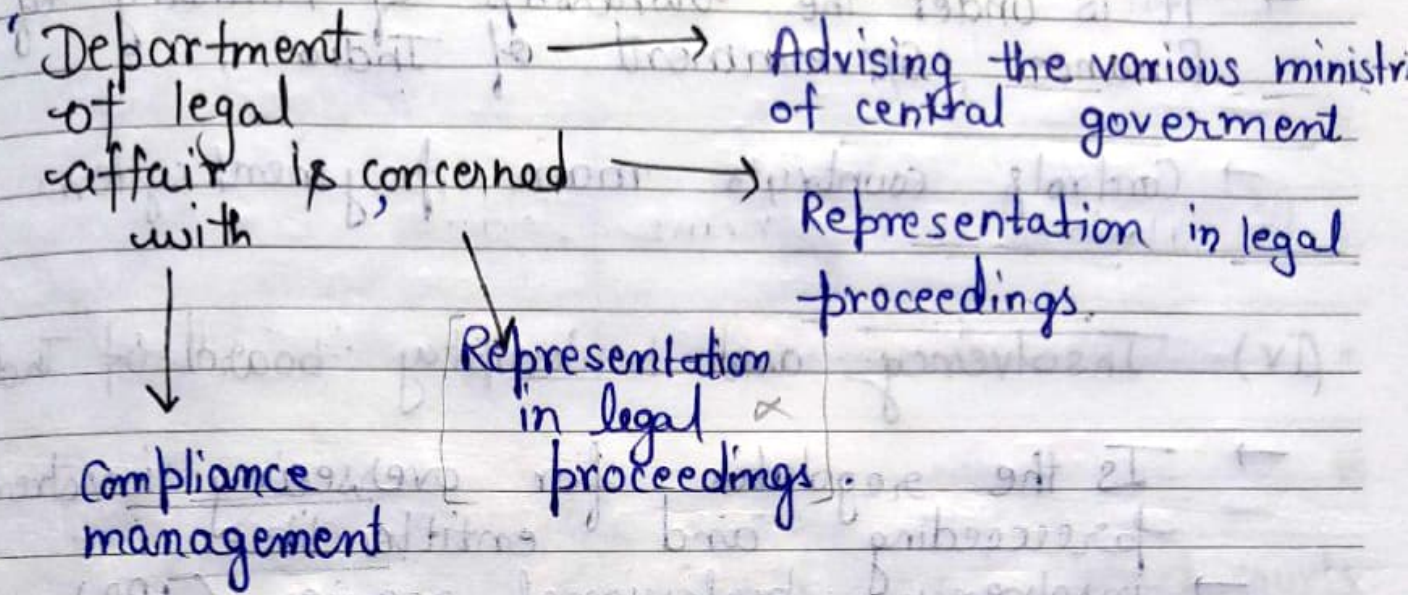 Department
of legal
affair is concerned
with
Advising the various ministri
of central goverment
Representation in legal
proceedings.
Representation
in legal
proceedings.
Compliance
management